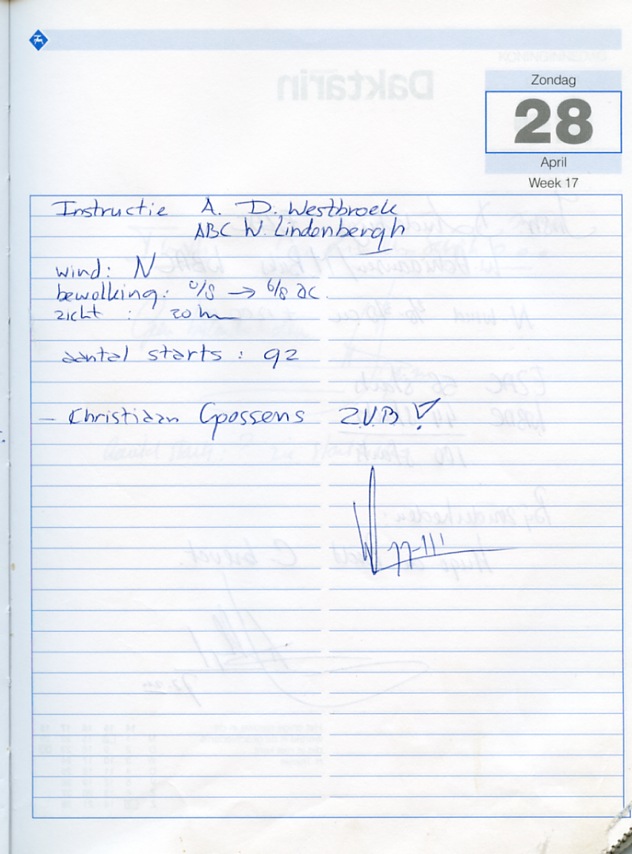 Zondag
28
April
Week 17
Instructie A. D. Westbroek
ABC W. Lindenbergh
wind: N
bewolking: 0/8 → 6/8 ac.
zicht : 20 km
aantal starts : 92
- Christiaan Goossens Z.V.B